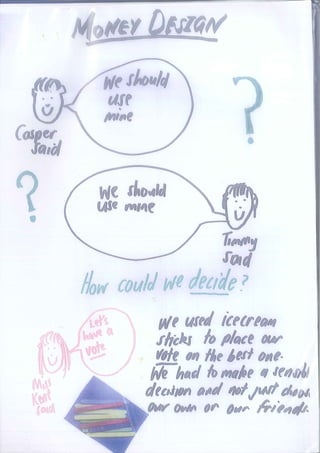 MONEY DESIGN
We should
use
mine
Casper
said
?
?
We should
use mine
Timmy
said
How could we decide?
Let's
have a
vote
Miss
Kent
said
We used icecream
sticks to place our
vote on the best one.
We had to make a sensible
decision and not just choose
our own or our friends.